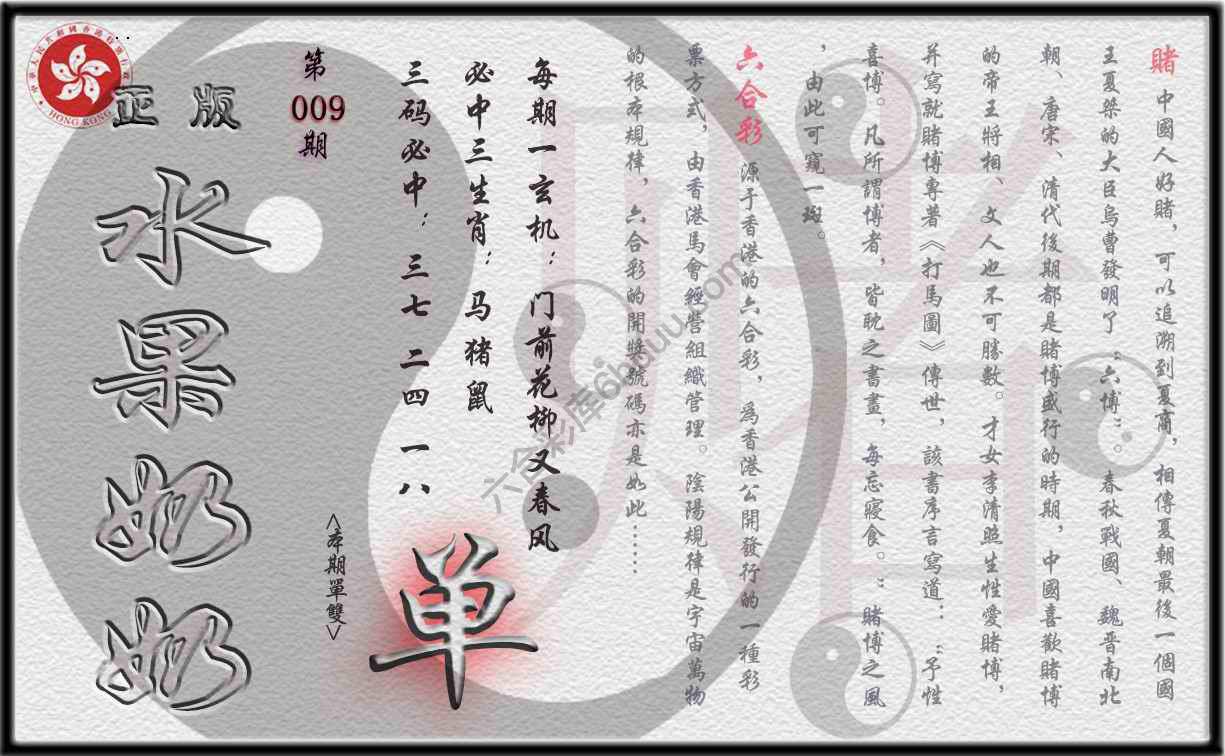 賭 中國人好賭，可以追溯到夏商，相傳夏朝最後一個國
王夏桀的大臣烏曹發明了“六博”。春秋戰國、魏晋南北
朝、唐宋、清代後期都是賭博盛行的時期，中國喜歡賭博
的帝王將相、文人也不可勝數。才女李清照生性愛賭博，
并寫就賭博專著《打馬圖》傳世，該書序言寫道：“予性
喜博。凡所謂博者，皆耽之書畫，每忘寢食。”賭博之風
，由此可窺一斑。
六合彩 源于香港的六合彩，爲香港公開發行的一種彩
票方式，由香港馬會經營組織管理。陰陽規律是宇宙萬物
的根本規律，六合彩的開獎號碼亦是如此……
每期一玄机：门前花柳又春风
必中三生肖：马猪鼠
三码必中：三七 二四 一八
单
<本期單雙>
第
009
期
正版
水果奶奶
HONG KONG
六合彩库6hduu.com